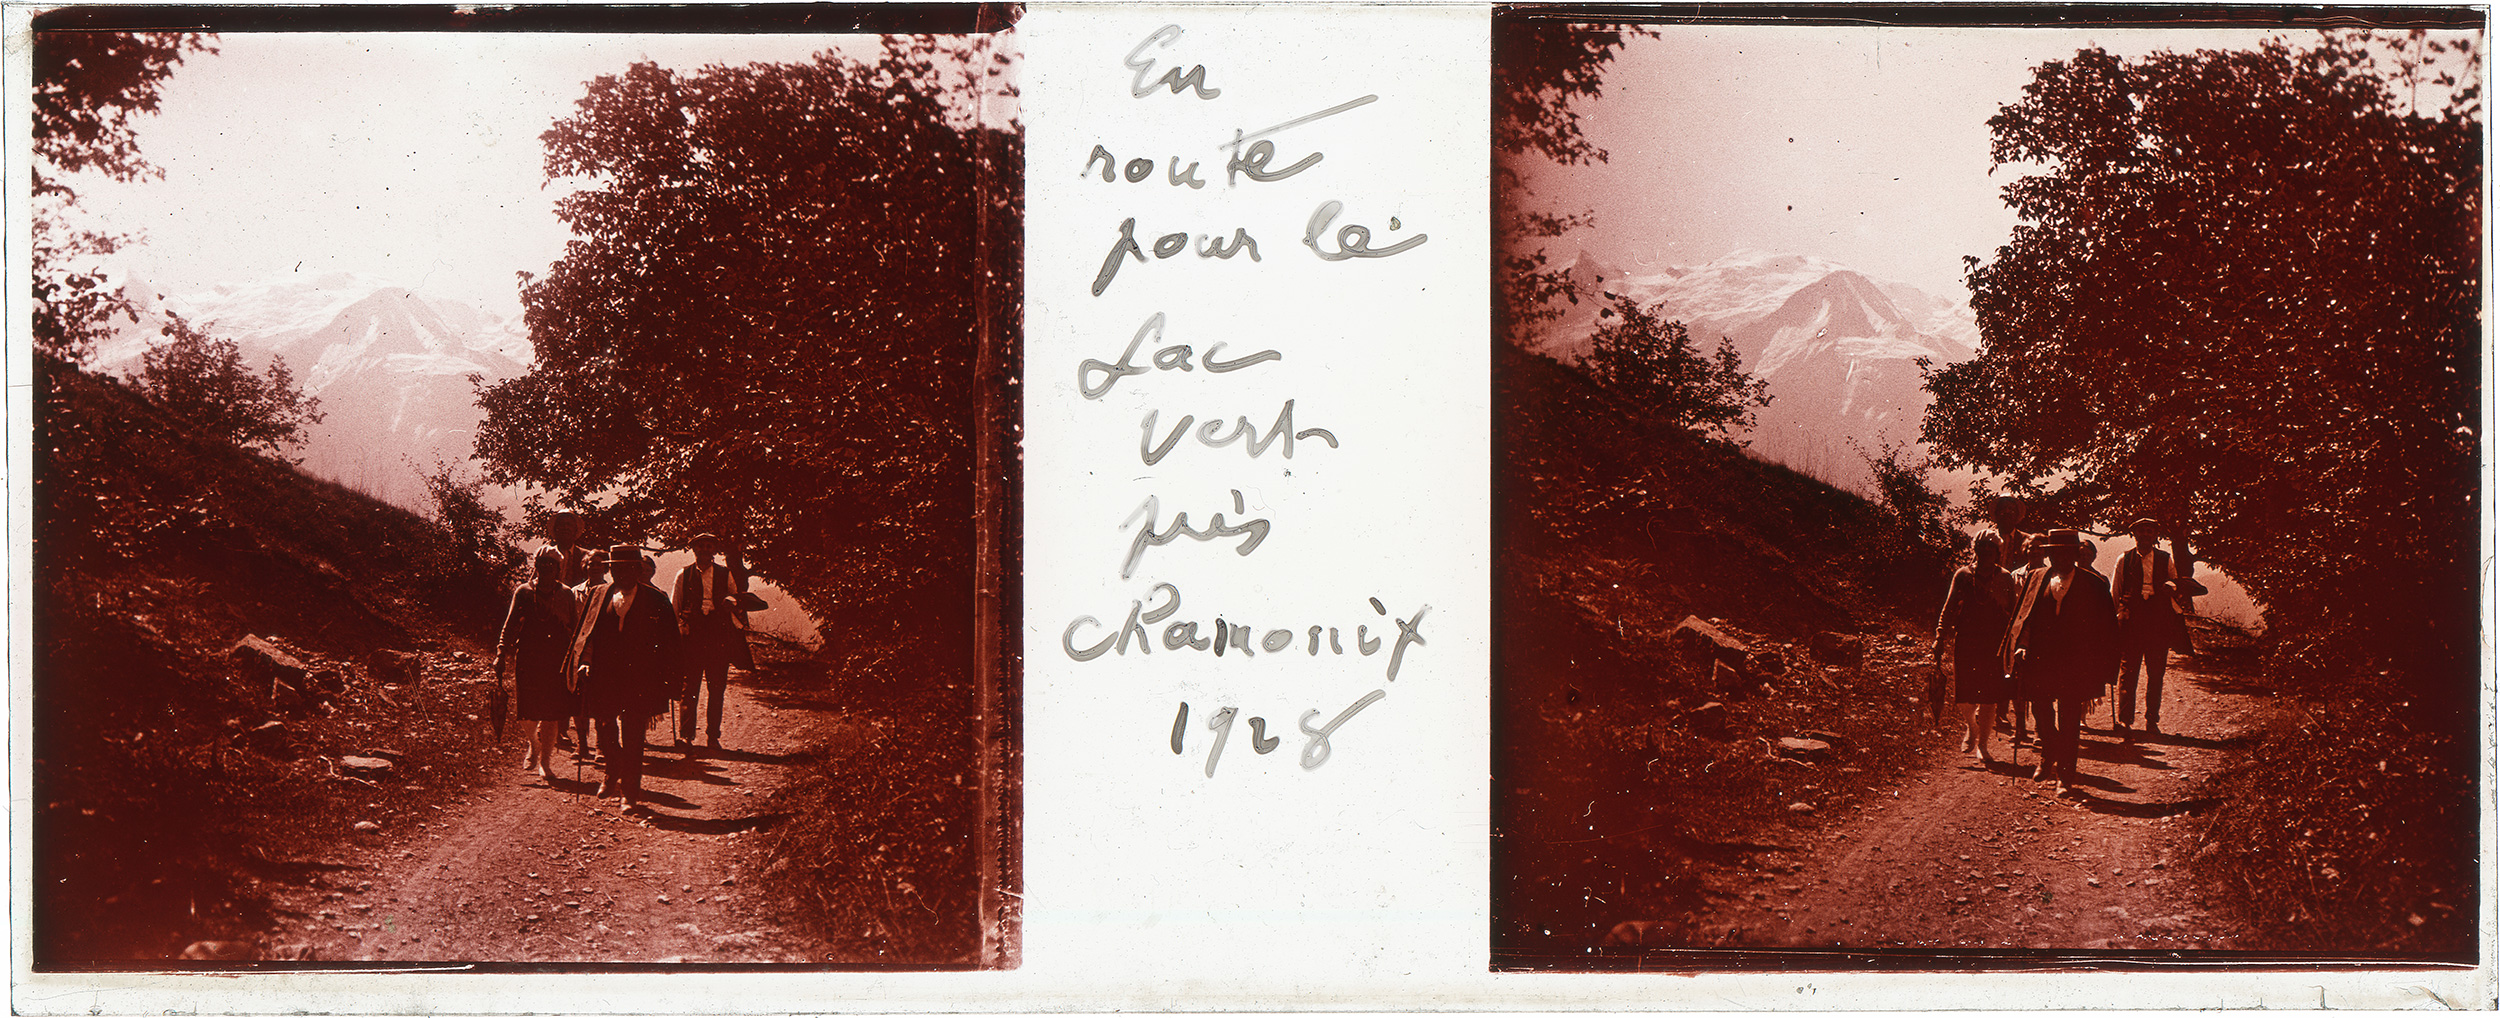 En
route
pour le
Lac
vert
près
chamonix
1928